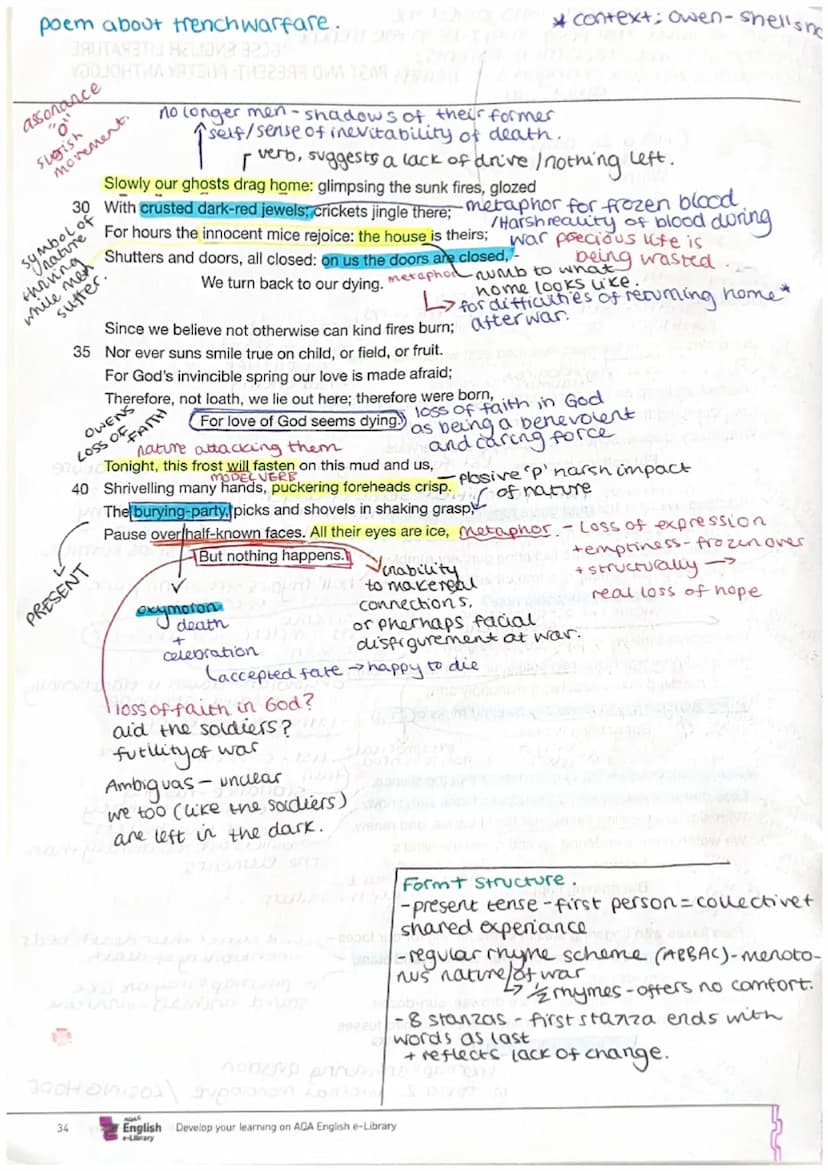 poem about trenchwarfare.
*context; owen- shellsho
assonance
"o"
slugish
movement.
no longer men - shadows of their former
self/sense of inevitability of death.
verb, suggests a lack of drive/nothing left.
Slowly our ghosts drag home: glimpsing the sunk fires, glozed
30 With crusted dark-red jewels; crickets jingle there;
metaphor for frozen blood
/Harsh reality of blood during
war precious life is
being wasted.
For hours the innocent mice rejoice: the house is theirs;
Shutters and doors, all closed: on us the doors are closed, -
We turn back to our dying.
symbol of
nature
thriving
while men
suffer.
metaphor
numb to what
home looks like.
for difficulties of returning home*
after war.
Since we believe not otherwise can kind fires burn;
35 Nor ever suns smile true on child, or field, or fruit.
For God's invincible spring our love is made afraid;
Therefore, not loath, we lie out here; therefore were born,
For love of God seems dying.
loss of faith in God
as being a benevolent
and caring force
OWENS
LOSS OF FAITH
nature attacking them
Tonight, this frost will fasten on this mud and us,
MODEL VERB
40 Shrivelling many hands, puckering foreheads crisp.
plosive 'p' harsh impact
of nature
The burying-party, picks and shovels in shaking grasp,
Pause over half-known faces. All their eyes are ice,
But nothing happens.
metaphor. - Loss of expression
+emptiness - frozen over
+structurally →
real loss of hope
PRESENT
inability
to make real
connections.
or pherhaps facial
disfigurement at war.
oxymoron
death
+
celebration
accepted fate → happy to die
loss of faith in God?
aid the soldiers?
futility of war
Ambiguas - unclear
we too (like the soldiers)
are left in the dark.
Form + structure.
-present tense - first person = collective +
shared experiance
-regular rhyme scheme (ABBAC) - monoto-
nus nature/of war
½ rhymes - offers no comfort.
- 8 stanzas - first stanza ends with
words as last
+ reflects lack of change.
34
AQA
English
e-Library
Develop your learning on AQA English e-Library